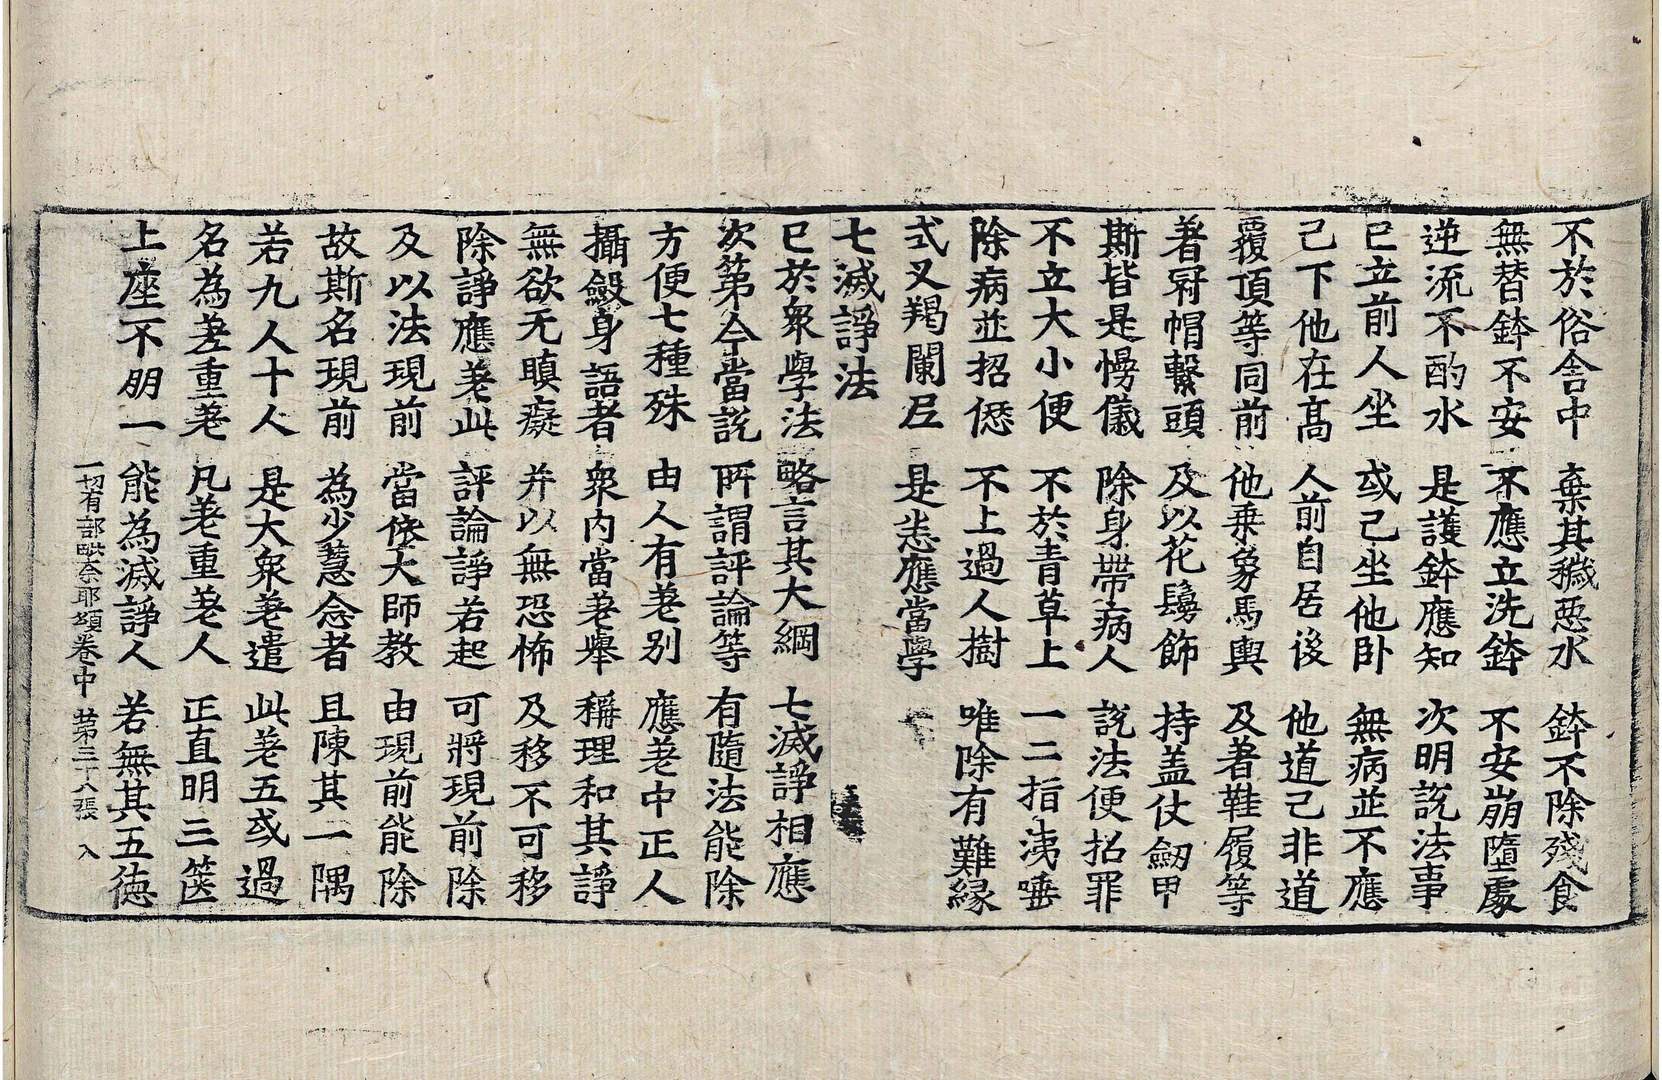 不於俗舍中　棄其穢惡水　鉢不除殘食
無替鉢不安　不應立洗鉢　不安崩墮處
逆流不酌水　是護鉢應知　次明說法事
已立前人坐　或己坐他卧　無病並不應
己下他在高　人前自居後　他道己非道
覆頂等同前　他乘象馬輿　及著鞋履等
著冠帽繫頭　及以花鬘飾　持盖仗劒甲
斯皆是慢儀　除身帶病人　說法便招罪
不立大小便　不於青草上　一二指洟唾
除病並招愆　不上過人樹　唯除有難緣
式叉羯闌尼　是恙應當學
七滅諍法
已於衆學法　略言其大綱　七滅諍相應
次第今當說　所謂評論等　有隨法能除
方便七種殊　由人有差别　應差中正人
攝斂身語者　衆內當差舉　稱理和其諍
無欲无瞋癡　并以無恐怖　及移不可移
除諍應差此　評論諍若起　可將現前除
及以法現前　當依大師教　由現前能除
故斯名現前　為少慧念者　且陳其一隅
若九人十人　是大衆差遣　此差五或過
名為差重差　凡差重差人　正直明三篋
上座不朋一　能為滅諍人　若無其五德
一切有部毗奈耶頌卷中　苐三十八張　入